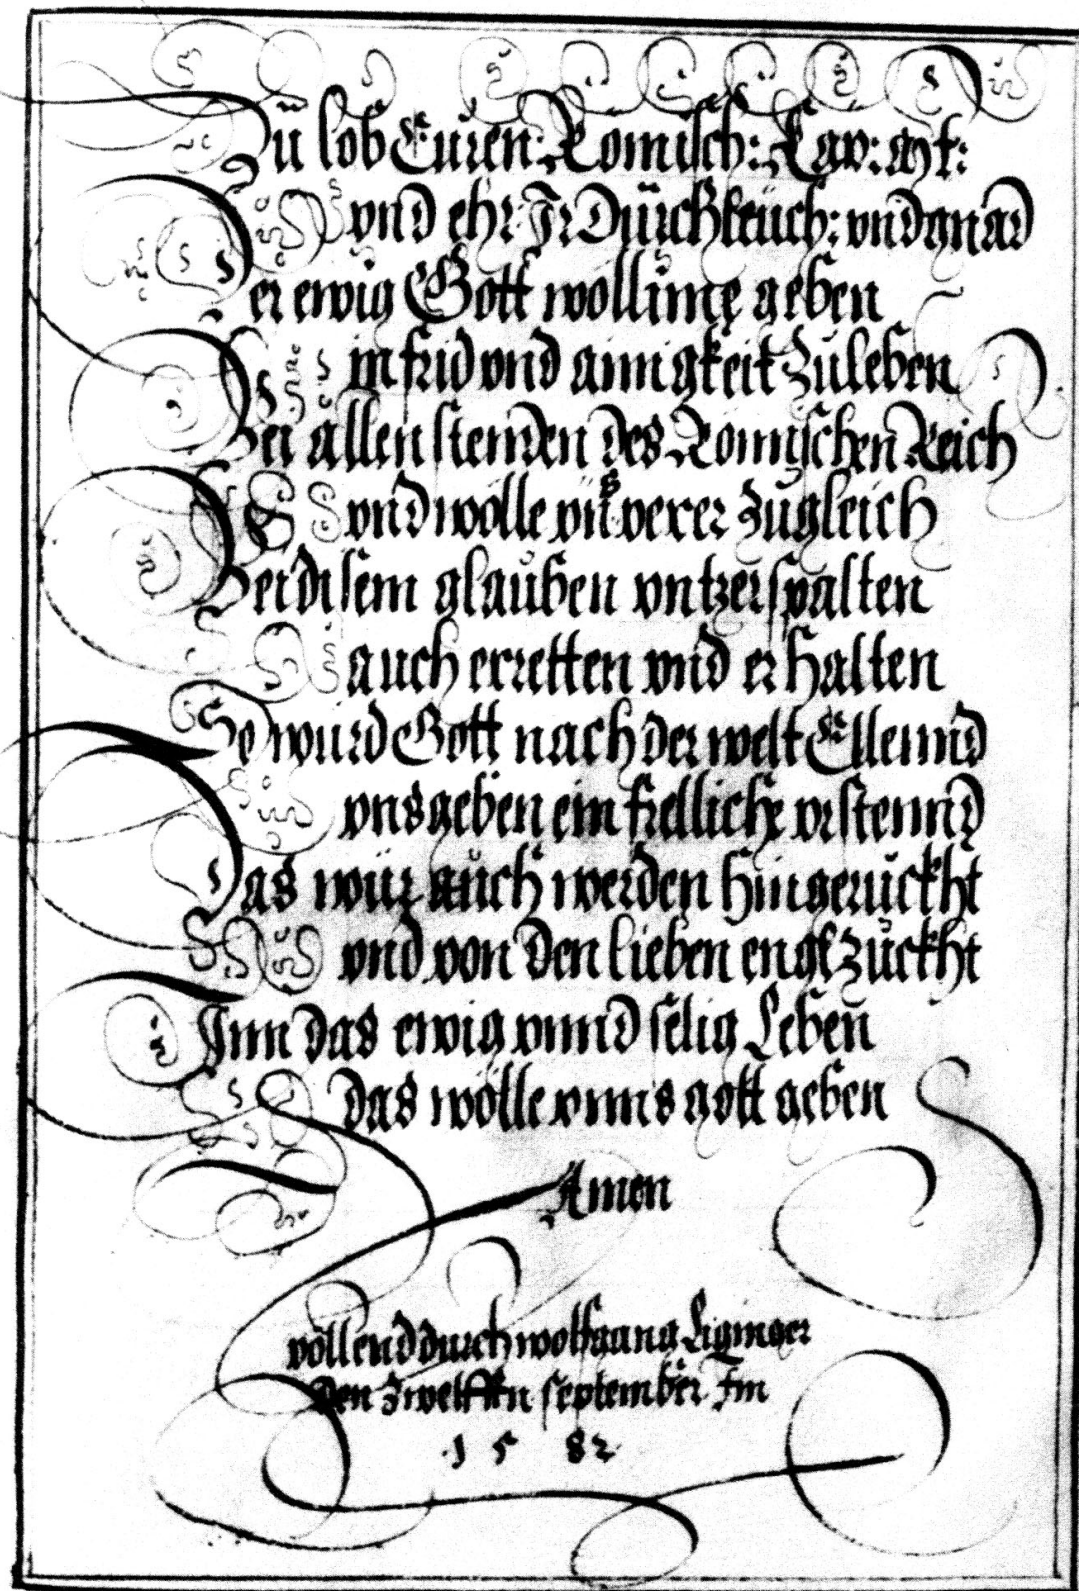 Zů lob Euren: Romisch: Kay: Mt:
vnd ehr Jr Dürchleüch: vnd gnad
Der ewig Gott woll ime geben
in frid vnd ainigkeit Zu leben
Bei allen stenden des Romischen Reich
vnd wölle zugleich
Bei disem glauben vntzerspalten
auch erretten vnd erhalten
So würd Gott nach der welt Ellennd
vns geben ein frelliche vrstennd
Das wür auch werden hingeruckht
vnd von den lieben engl Zuckht
Inn das ewig vnnd selig Leben
das wölle vnns gott geben
Amen
vollend durch wolfgang
Den Zwelfften september Im
1 5 8 2